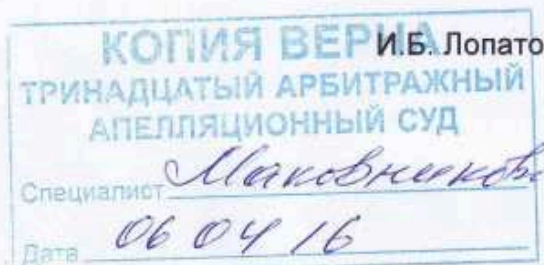 КОПИЯ ВЕРНА И.Б. Лопато
ТРИНАДЦАТЫЙ АРБИТРАЖНЫЙ
АПЕЛЛЯЦИОННЫЙ СУД
Специалист Маковникова
Дата 06 04 16